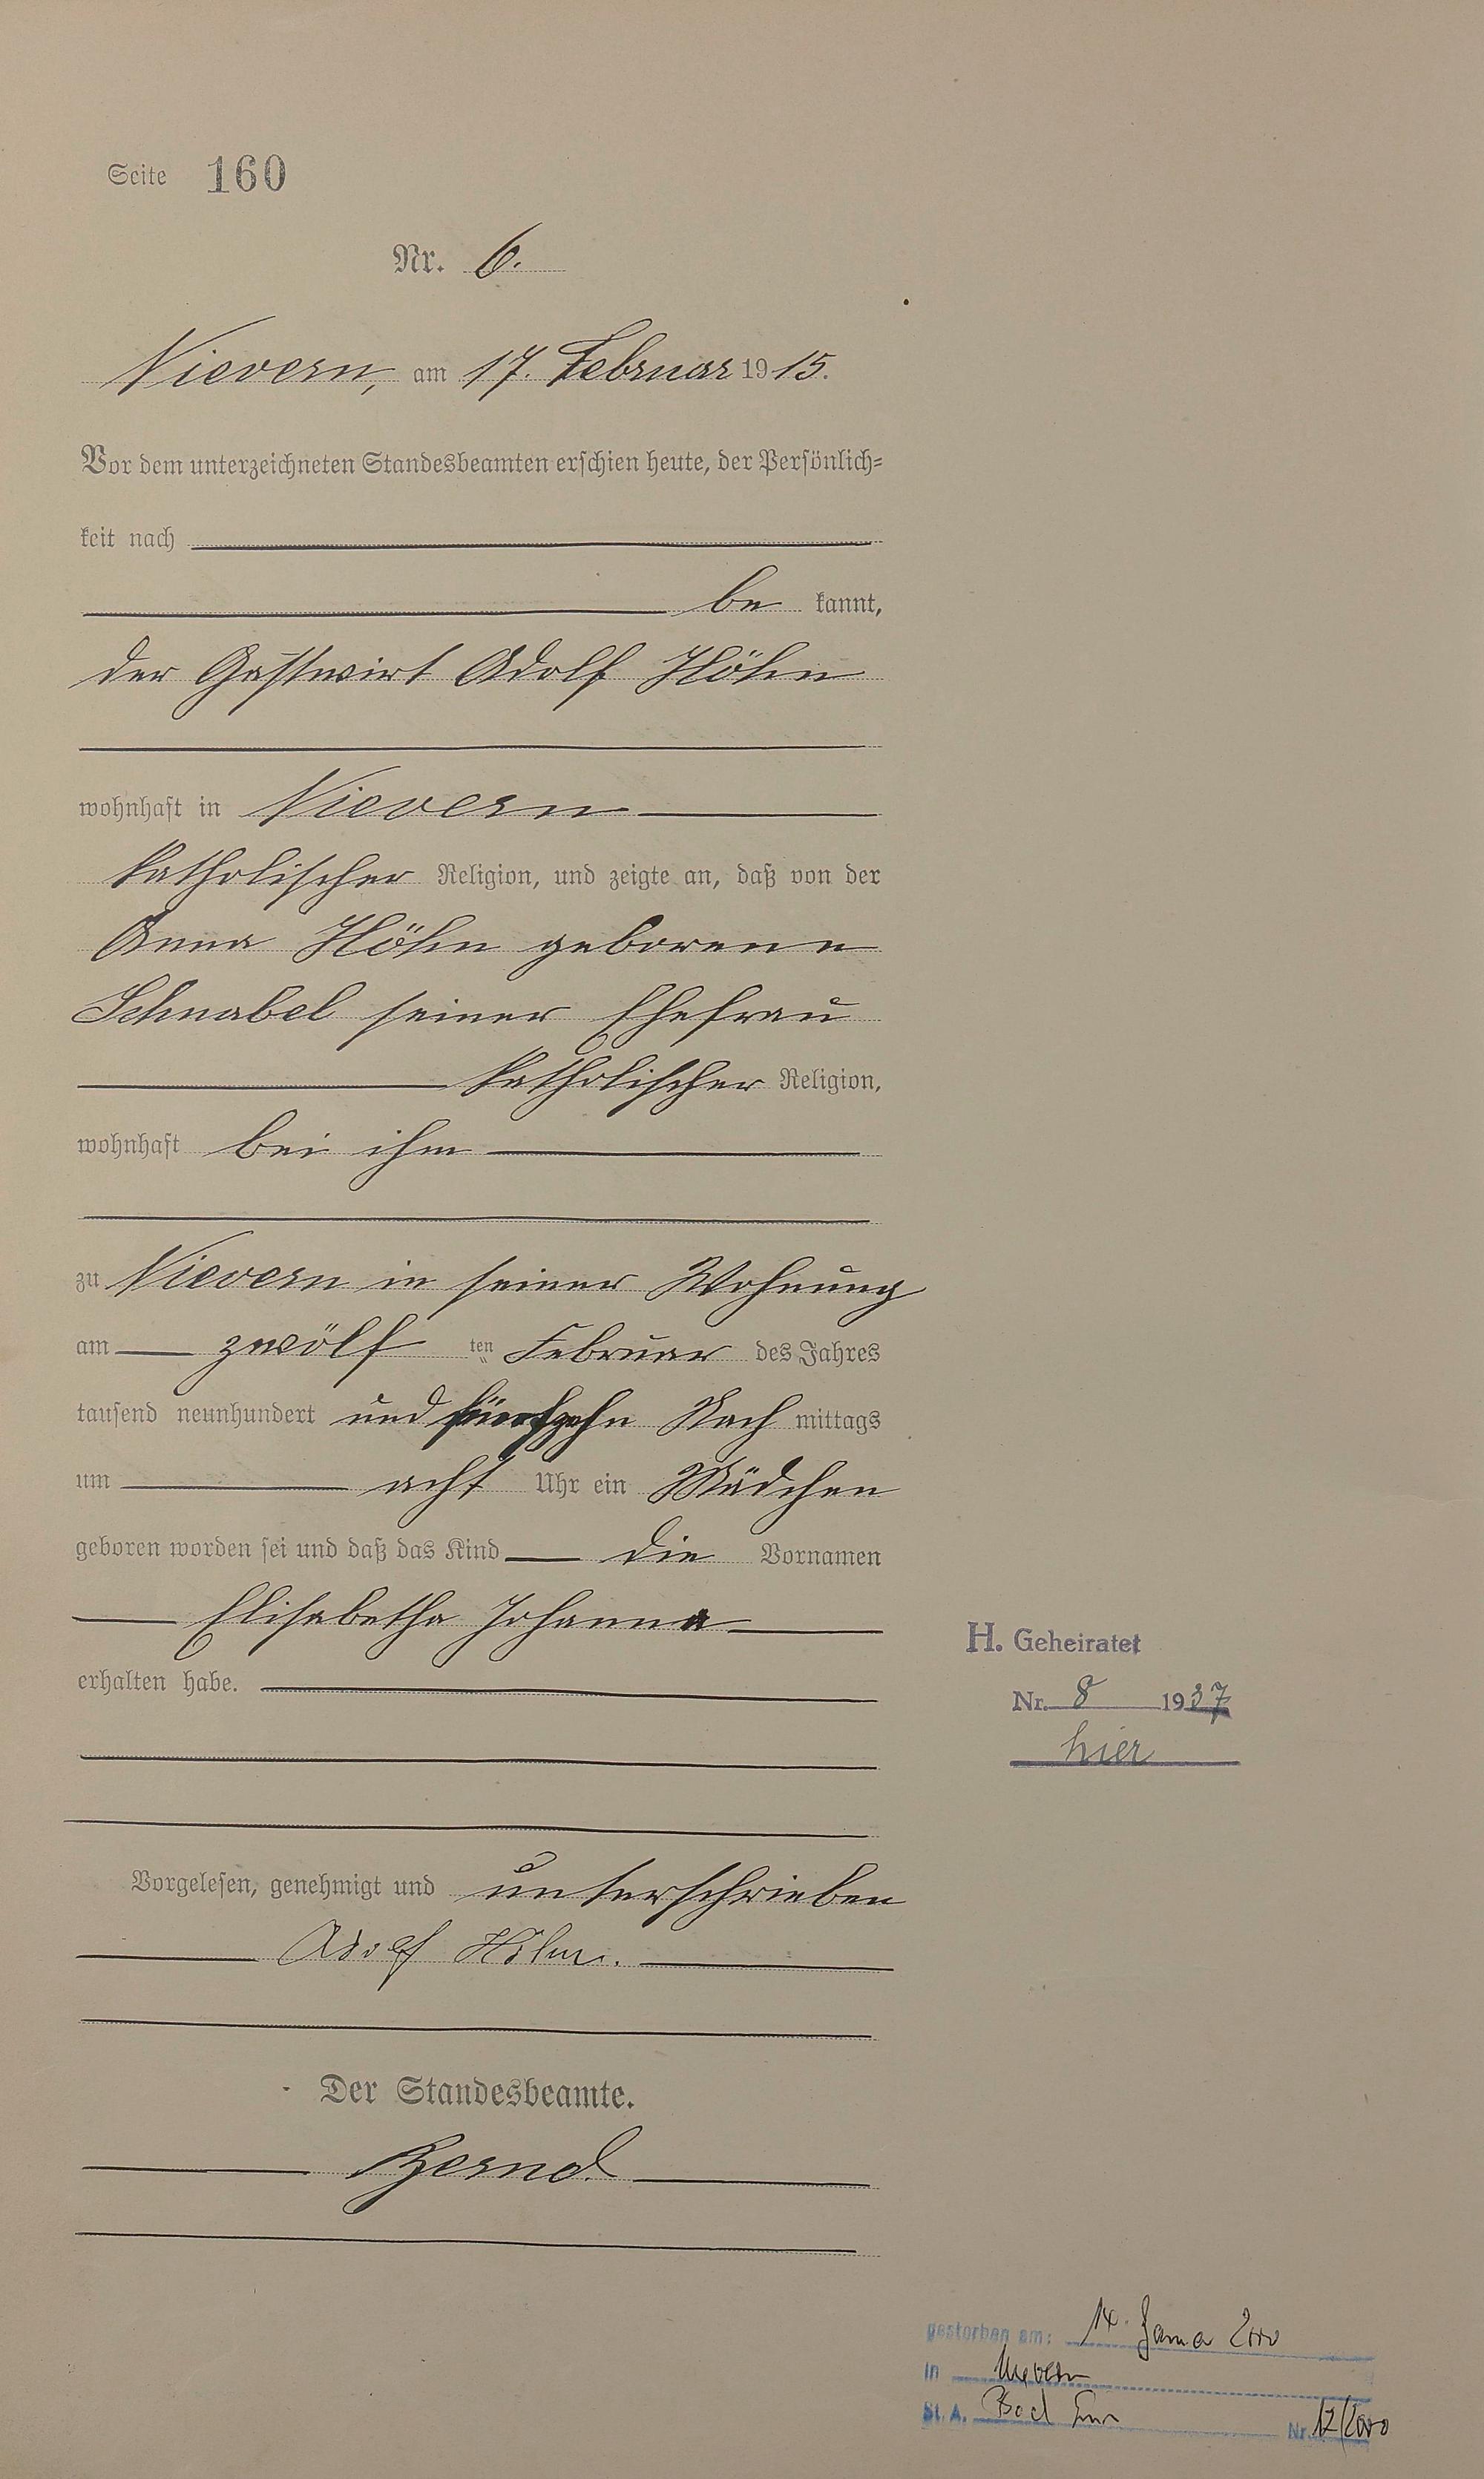 Seite 160
Nr. 6.
Nievern, am 17. Februar 1915.
Vor dem unterzeichneten Standesbeamten erschien heute, der Persönlich=
keit nach
be kannt,
der Gastwirt Adolf Höhn
wohnhaft in Nievern
katholischer Religion, und zeigte an, daß von der
Anna Höhn geborene
Schnabel seiner Ehefrau
katholischer Religion,
wohnhaft bei ihm
zu Nievern in seiner Wohnung
am zwölf ten Februar des Jahres
tausend neunhundert und fünfzehn Nach mittags
um acht Uhr ein Mädchen
geboren worden sei und daß das Kind die Vornamen
Elisabetha Johanna
erhalten habe.
H. Geheiratet
Nr. 8 1937
hier
Vorgelesen, genehmigt und unterschrieben
Adolf Höhn.
Der Standesbeamte.
Bernd
gestorben am: 14. Janua 2000
in Nievern
St. A. Bad Ems Nr. 12/2000